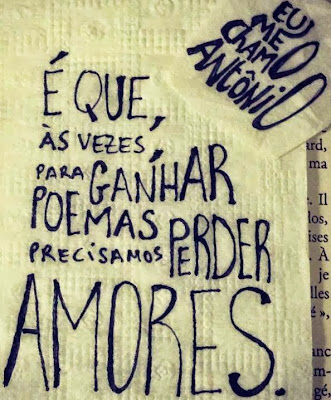 EU
ME
CHAMO
ANTÔNIO
É QUE,
ÀS VEZES,
PARA GANHAR
POEMAS
PRECISAMOS PERDER
AMORES.
ard,
ma
. Il
los,
ises
. À
je
lles
é »,
unc
m-
gé,